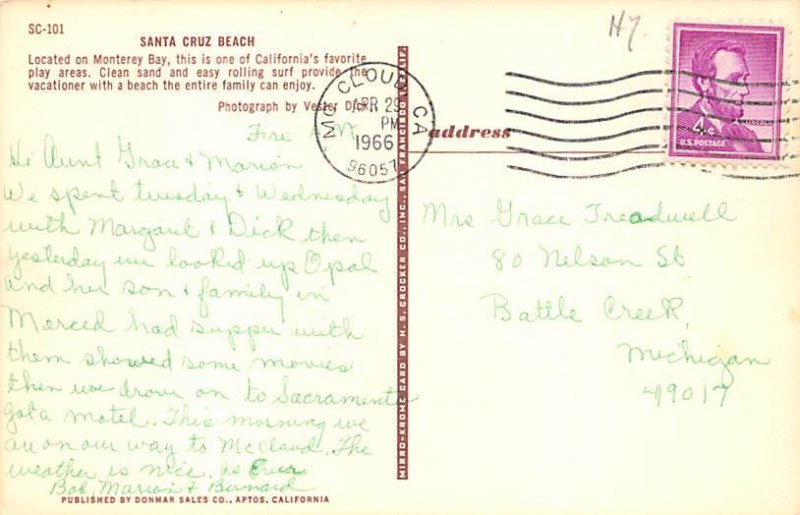 SC-101
SANTA CRUZ BEACH
Located on Monterey Bay, this is one of California's favorite
play areas. Clean sand and easy rolling surf provide the
vacationer with a beach the entire family can enjoy.
Photograph by Vester Dick
H7
MC CLOUD, CA
APR 29
PM
1966
96057
LINCOLN
4¢
U.S. POSTAGE
address
Fri
Hi Aunt Grace & Marion
We spent tuesday & Wednesday
with Margaret & Dick then
yesterday we looked up Opal
and her son & family in
Merced had supper with
them showed some movies
then we drove on to Sacramento
got a motel. This morning we
are on our way to McCloud. The
weather is nice. As Ever
Bob, Marion & Bernard
PUBLISHED BY DONMAR SALES CO., APTOS, CALIFORNIA
MIRRO-KROME CARD BY H. S. CROCKER CO., INC., SAN FRANCISCO
Mrs Grace Treadwell
80 Nelson St
Battle Creek,
Michigan
49017